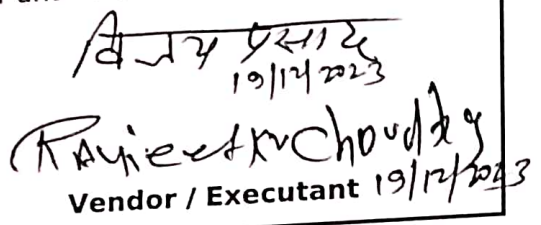 विजय प्रसाद
19/12/2023
Ranjeet Kr Choudhary
Vendor / Executant 19/12/2023